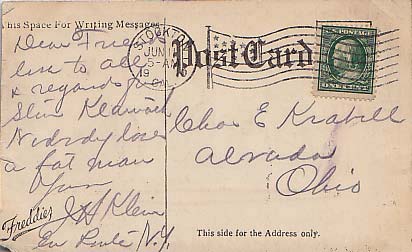 This Space For Writing Messages
Post Card
STOCKTON
JUN
5-AM
19
U.S. POSTAGE
Dear Friend
love to all
& regards from
Slim
Nobody loves
a fat man
Yours
J H Klein
En Route N.Y.
Freddie
Chas E Krabill
Alvada
Ohio
This side for the Address only.